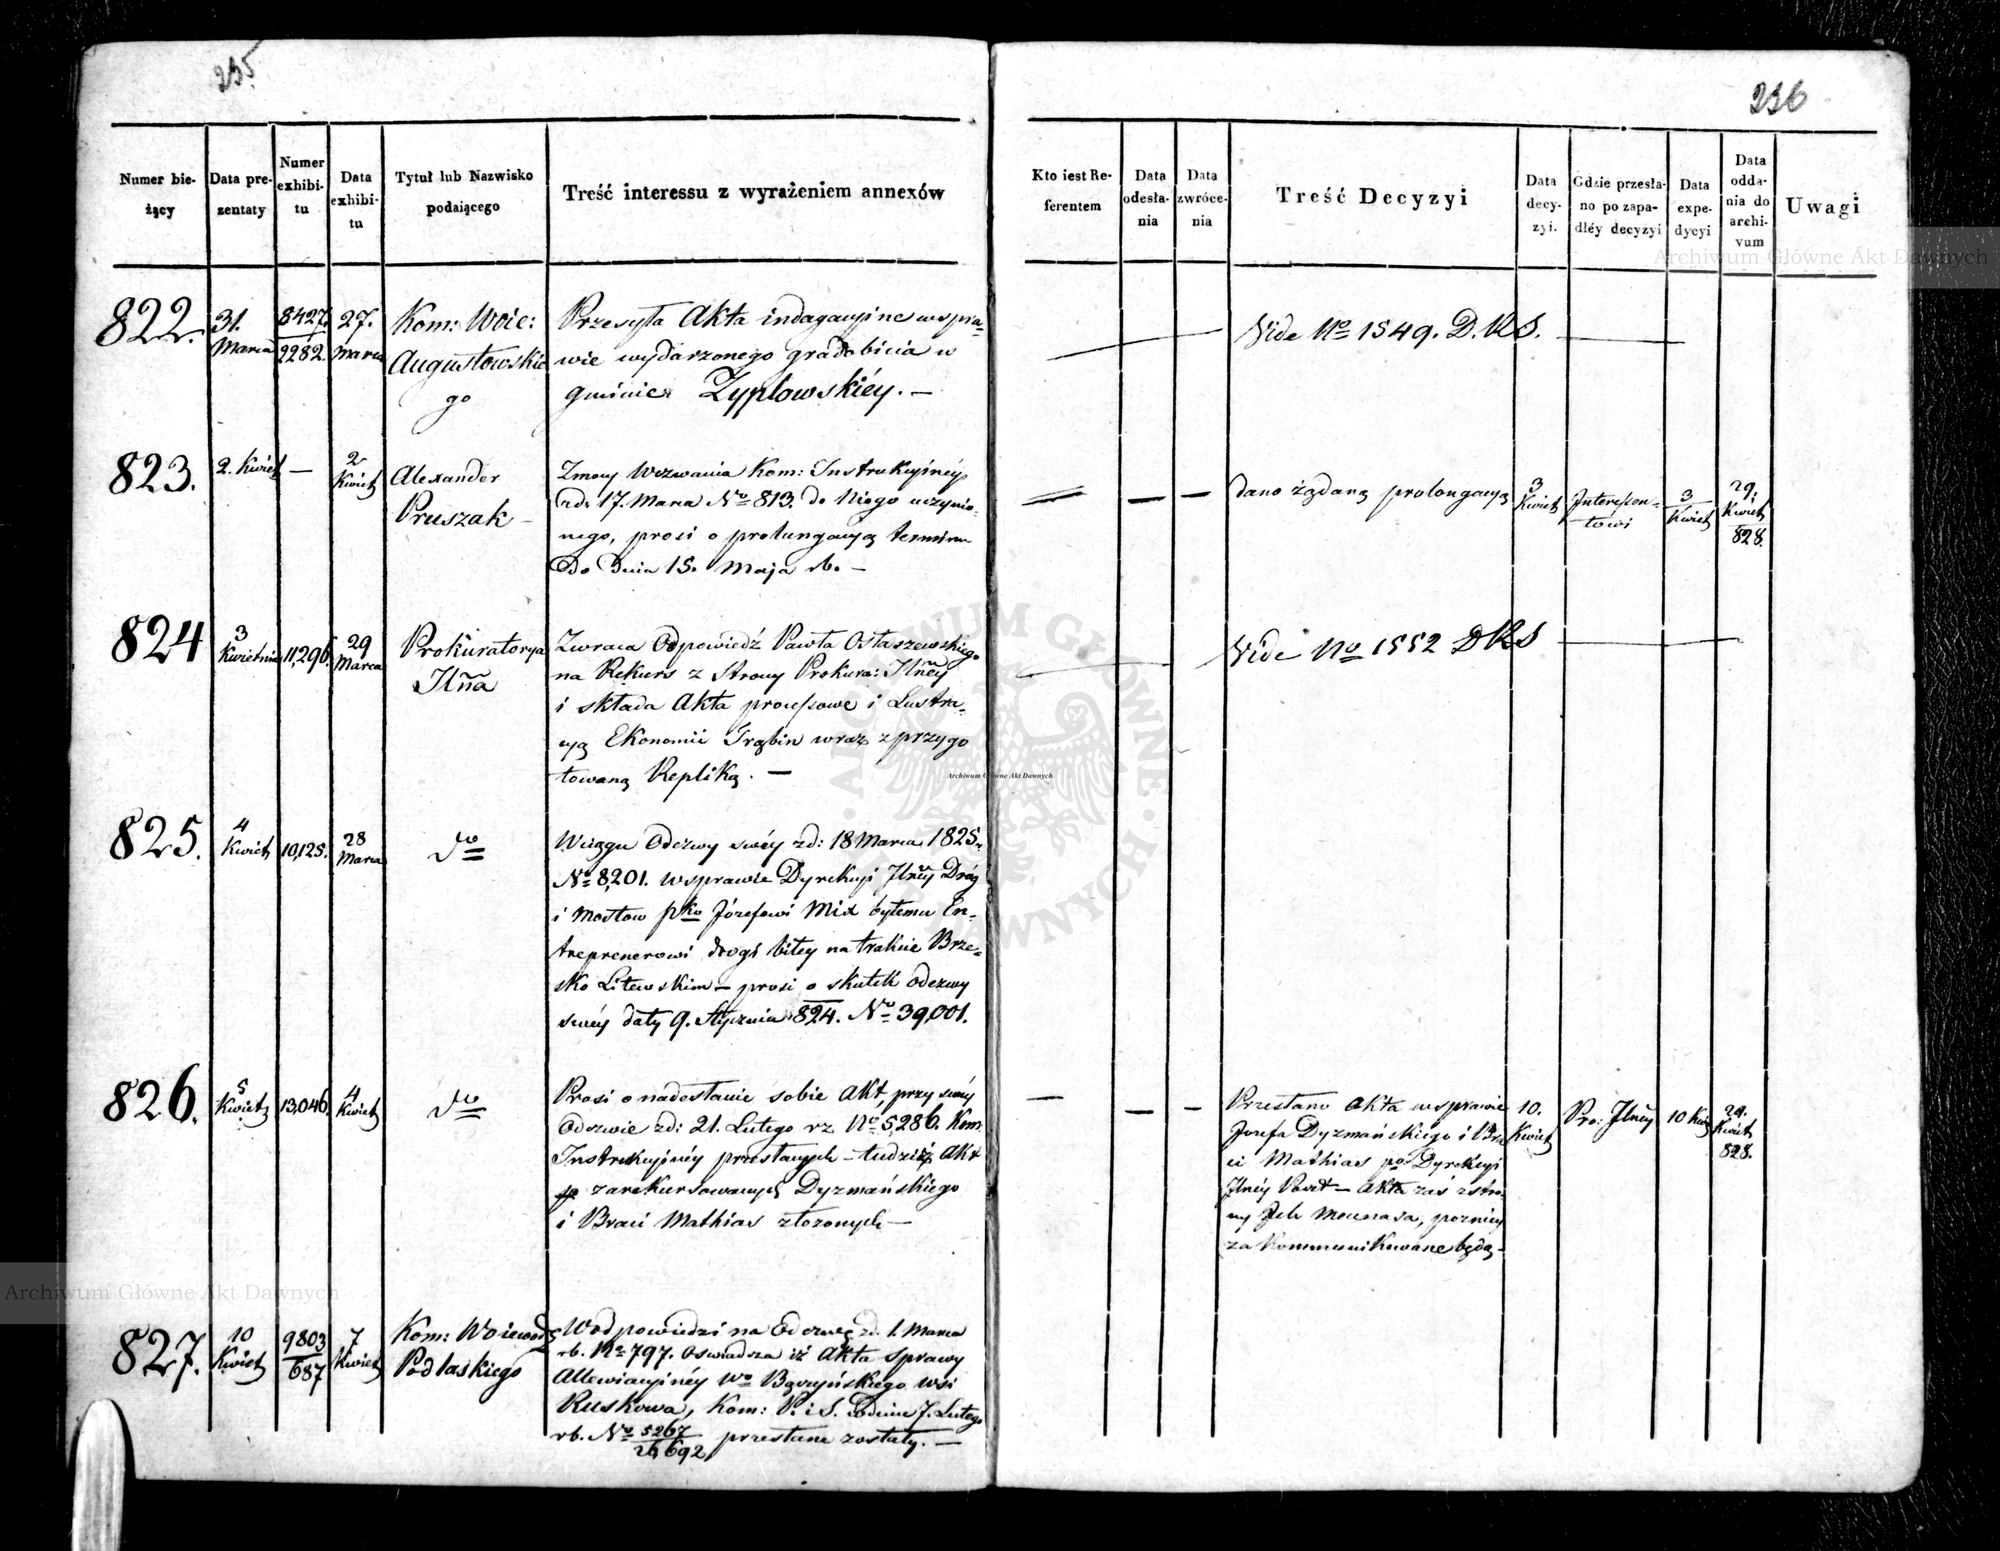 235
236
Numer bie-
żący
Data pre-
zentaty
Numer
exhibi-
tu
Data
exhibi-
tu
Tytuł lub Nazwisko
podaiącego
Treść interessu z wyrażeniem annexów
Kto iest Re-
ferentem
Data
odesła-
nia
Data
zwróce-
nia
Treść Decyzyi
Data
decy-
zyi.
Gdzie przesła-
no po zapa-
dłéy decyzyi
Data
expe-
dycyi
Data
odda-
nia do
archi-
vum
Uwagi
822.
31.
Marca
8427.
2282.
27.
Marca
Kom: Woie:
Augustowskie
go
Przesyła Akta indagacyine w spra-
wie wydarzonego gradobicia w
gminie Zyplowskiéy. —
Vide No 1549. D.R.S. —
823.
2. Kwiet
—
2
Kwiet
Alexander
Pruszak —
Zmocy Wezwania Kom: Instrukcyinéy
zd: 17. Marca No 813. do Niego uczynio-
nego, prosi o prolungacyą terminu
Do Dnia 15. Maja rb. —
dano żądaną prolongacyą
3
Kwiet
Interesson-
towi
3
Kwiet
29.
Kwiet
828.
824
3
Kwietnia
11,296.
29
Marca
Prokuratorya
Jlna
Zwraca Odpowiedź Pawła Ostaszewskiego
na Rekurs z Strony Prokura: Jlnéy
i składa Akta processowe i Lustra-
cyą Ekonomii Trąbin wraz z przygo
towaną Repliką. —
Vide No 1552 DRS
825.
4
Kwiet
10,125.
28
Marca
do
W ciągu Odezwy swéy zd: 18 Marca 1825.
No 8,201. w sprawie Dyrekcyi Jlnéy Dróg
i Mostow pko Józefowi Mix byłemu En-
treprenerowi drogi bitey na trakcie Brze-
sko Litewskim — prosi o skutek odezwy
swéy daty 9. Stycznia 824. No 39,001.
826.
5
Kwiet
13,046.
4
Kwiet
do
Prosi o nadesłanie sobie Akt przy swéy
Odezwie zd: 21. Lutego rz No 5,286. Kom
Instrukcyinéy przesłanych — tudzież Akt
p zarekursowanych Dyzmańskiego
i Braci Mathias złozonych —
Przesłano Akta w sprawie
Jozefa Dyzmańskiego i Bra
ci Mathias po Dyrekcyi
Jlnéy Poczt — Akta zaś z stro
ny Jch Mecenasa, pozniey
zakommunikowane będą —
10.
Kwiet
Pro: Jlnéy
10 Kwi
29.
Kwiet
828.
827.
10
Kwiet
9803
687
7
Kwiet
Kom: Woiewodz
Podlaskiego
W odpowiedzi na Odezwę zd. 1. Marca
rb. No 797. Oswiadcza iż Akta Sprawy
Allewiacyinéy Wo Bączyńskiego wsi
Ruskowa, Kom: P. i S. Podniu 7. Lutego
rb. No 5267
26692 przesłane zostały. —
Archiwum Główne Akt Dawnych
Archiwum Główne Akt Dawnych
Archiwum Główne Akt Dawnych
ARCHIWUM GŁÓWNE AKT DAWNYCH